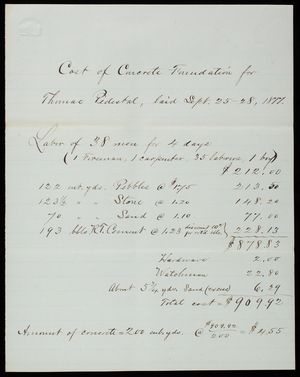 Cost of Concrete Foundation for
Thomas Pedestal, laid Sept. 25-28, 1877.
Labor of 38 men for 4 days
(1 Foreman, 1 carpenter, 35 laborers 1 boy)
$212.00
122 cub. yds. Pebbles @ $1.75 213.50
123 1/2 " " Stone @ 1.20 148.20
70 " " Sand @ 1.10 77.00
193 bbls R.T. Cement @ 1.23 228.13
$878.83
Hardware 2.00
Watchman 22.80
About 5 3/4 yds. Sand 6.29
Total cost = $909.92
Amount of concrete = 200 cub. yds. @ $909.92/200 = $4.55